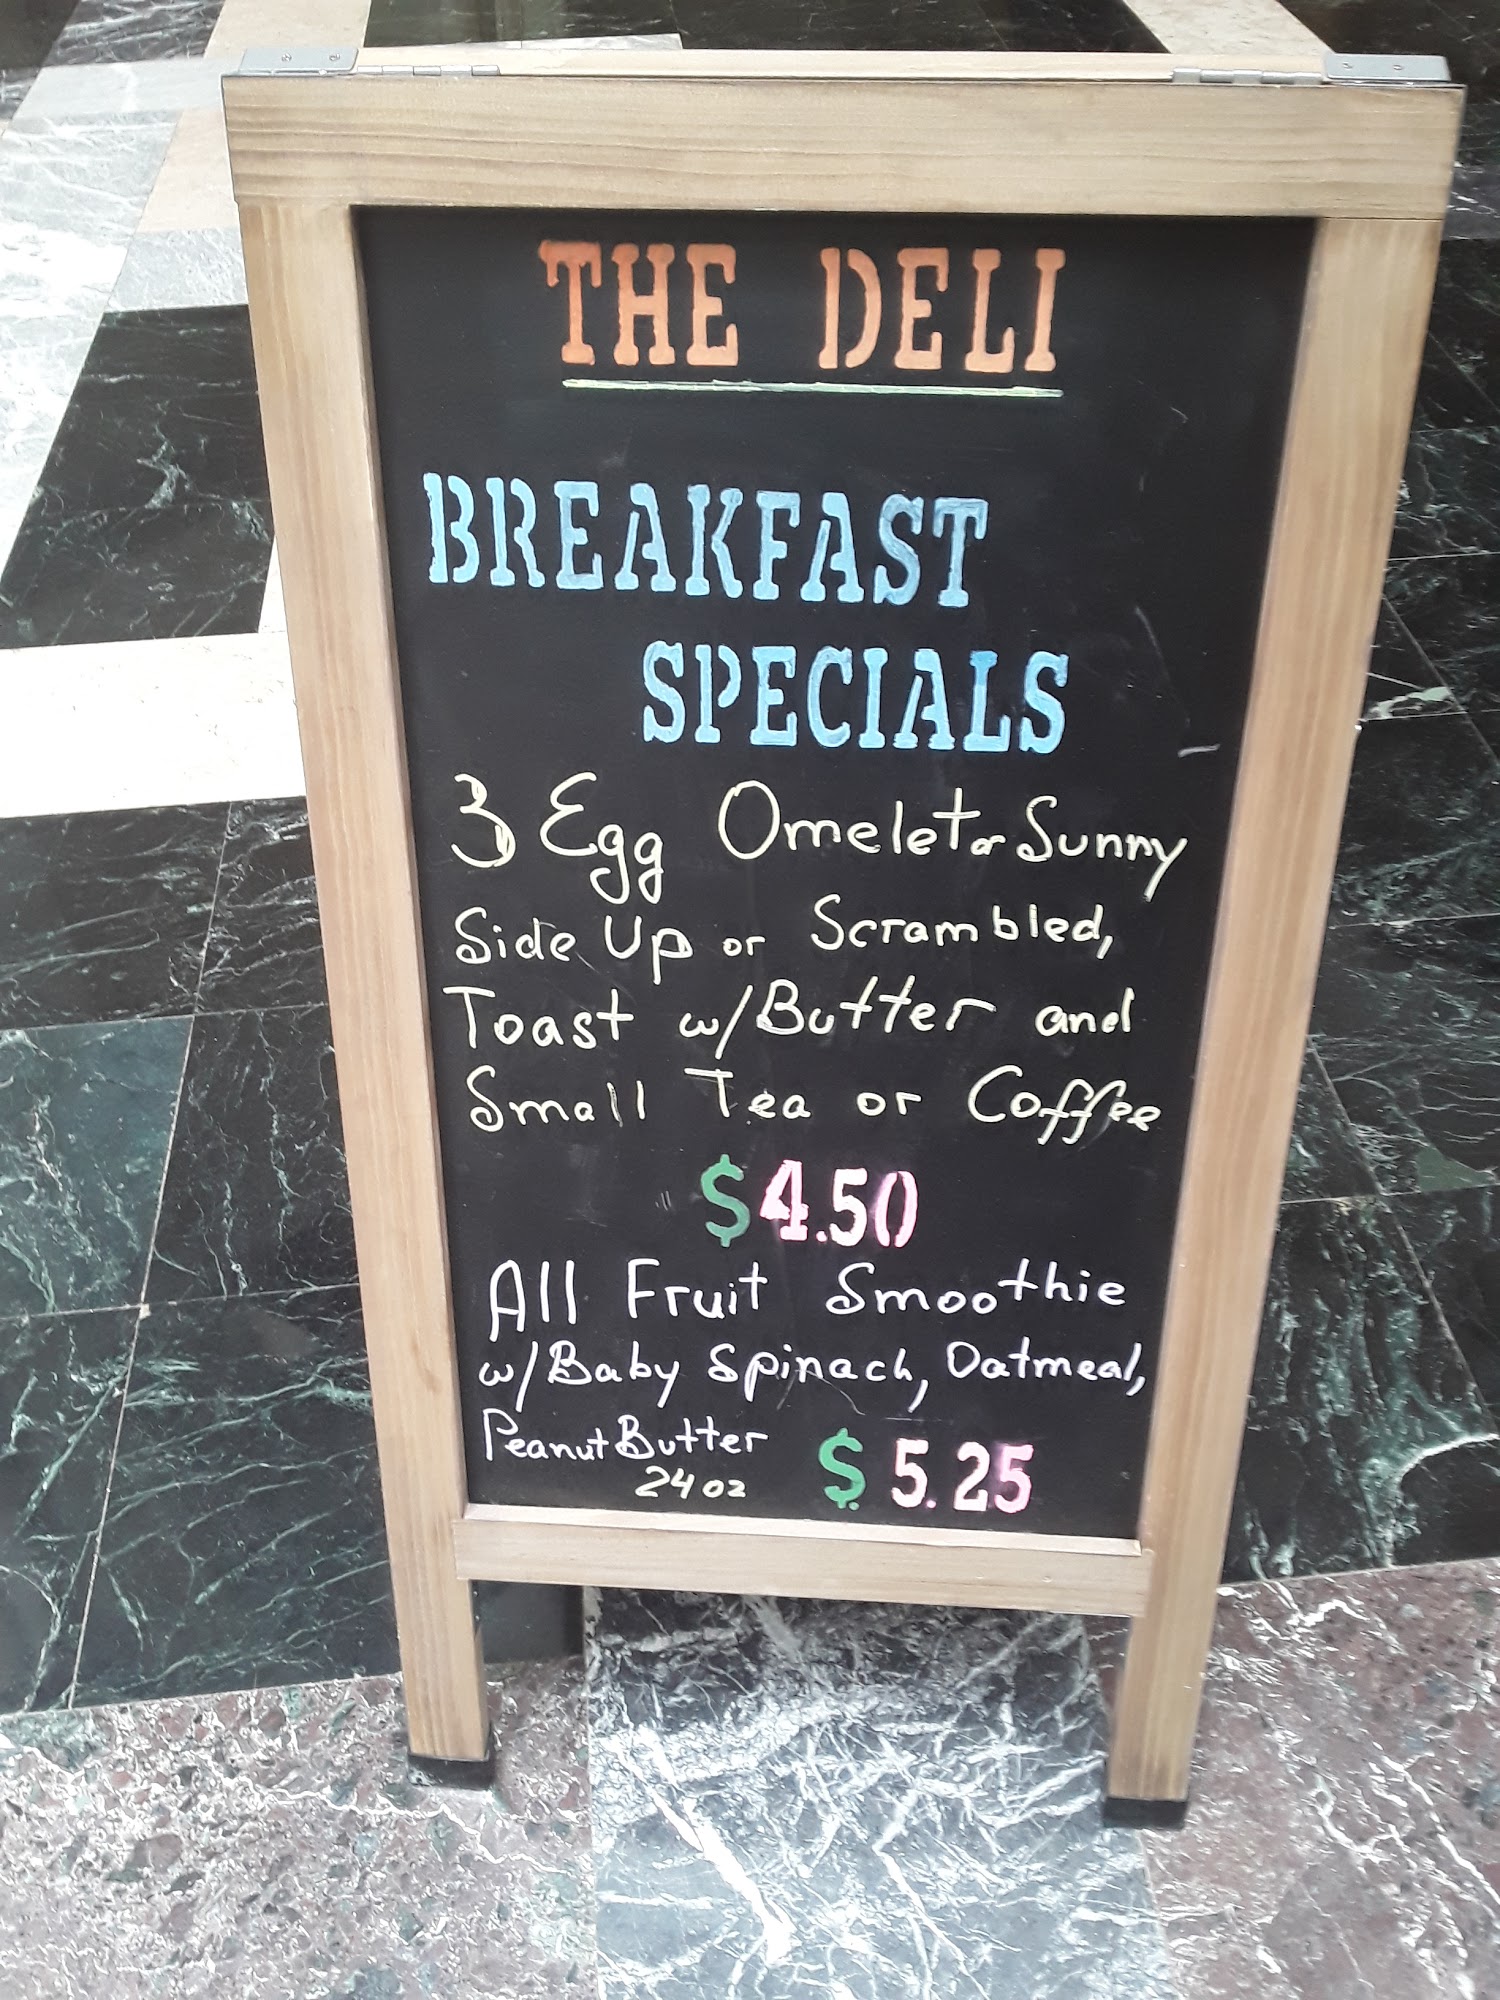 THE DELI
BREAKFAST
SPECIALS
3 Egg Omelet or Sunny
Side Up or Scrambled,
Toast w/Butter and
Small Tea or Coffee
$4.50
All Fruit Smoothie
w/Baby Spinach, Oatmeal,
Peanut Butter
24 oz $5.25